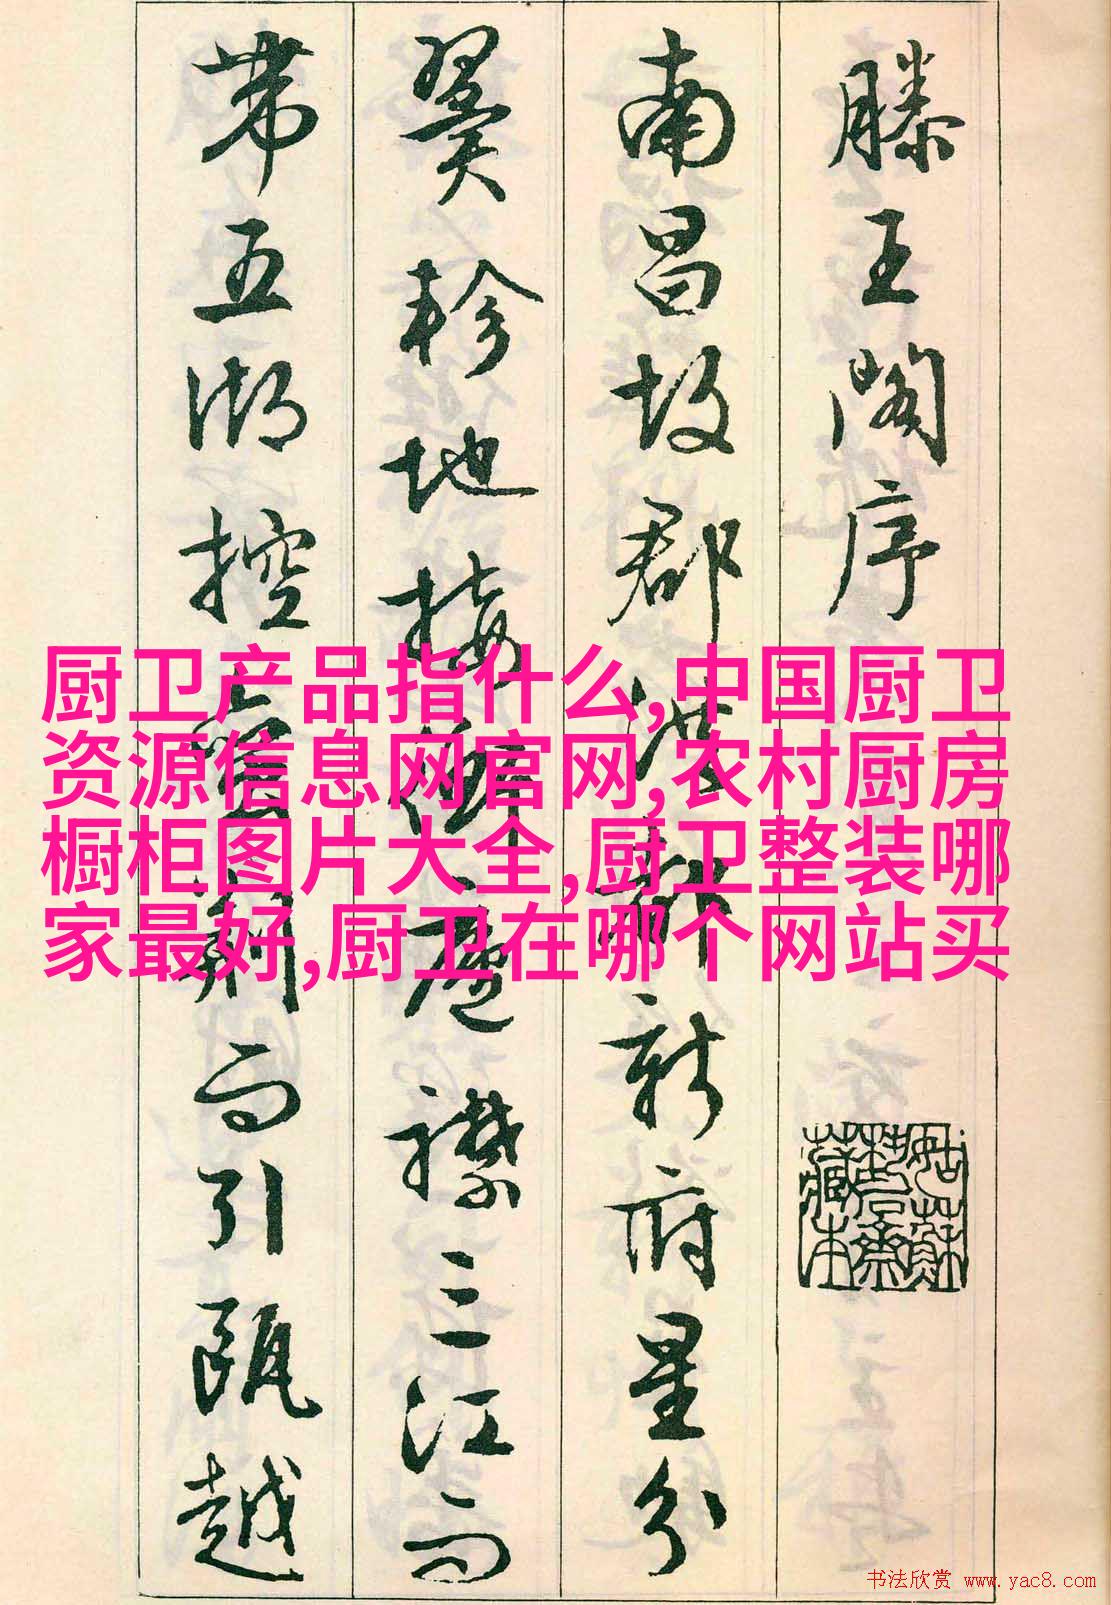 滕王阁序
南昌故郡洪都新府星分
翼轸地接衡庐襟三江而
带五湖控蛮荆而引瓯越
厨卫产品指什么,中国厨卫
资源信息网官网,农村厨房
橱柜图片大全,厨卫整装哪
家最好,厨卫在哪个网站买
书法欣赏 www.yac8.com